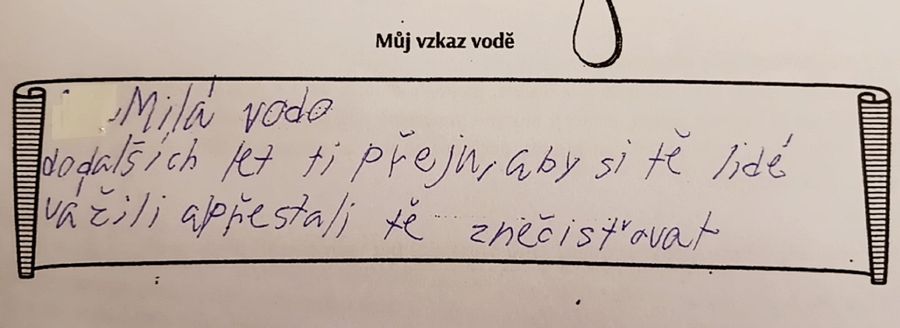 Můj vzkaz vodě
Milá vodo
dodalších let ti přeju, aby si tě lidé
vážili apřestali tě znéčisťovat